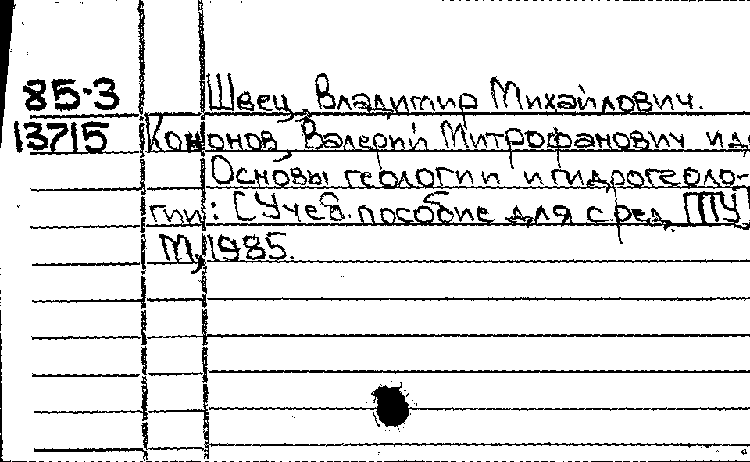 85-3 Швец, Владимир Михайлович.
13715 Кононов, Валерий Митрофанович и др
Основы геологии и гидрогеоло-
гии: [Учеб. пособие для сред. ПТУ]
М, 1985.